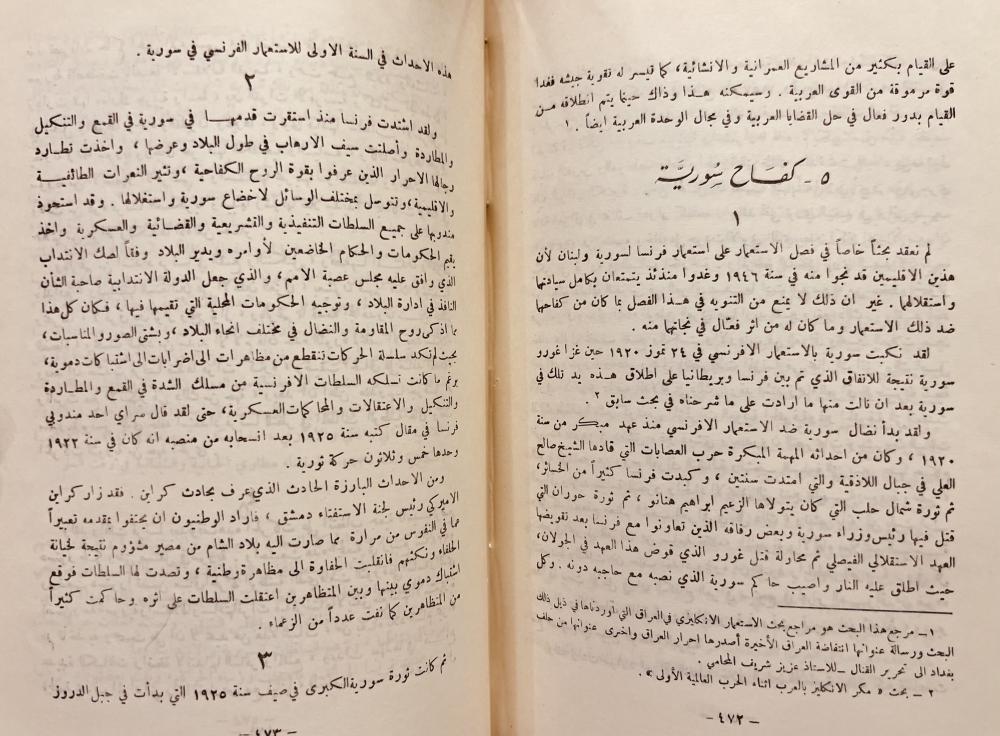 على القيام بكثير من المشاريع العمرانية والانشائية، كما تيسر له تقوية جيشه فغدا
قوة مرموقة من القوى العربية . وسيمكنه هذا وذاك حينما يتم انطلاقه من
القيام بدور فعال في حل القضايا العربية وفي مجال الوحدة العربية ايضاً . ١
٥ - كفاح سورية
١
لم نعقد بحثاً خاصاً في فصل الاستعمار على استعمار فرنسا لسورية ولبنان لأن
هذين الاقليمين قد نجوا منه في سنة ١٩٤٦ وغدوا منذئذ يتمتعان بكامل سيادتها
واستقلالهما . غير ان ذلك لا يمنع من التنويه في هذا الفصل بما كان من كفاحها
ضد ذلك الاستعمار وما كان له من اثر فعال في نجاتهما منه .
لقد نكبت سورية بالاستعمار الافرنسي في ٢٤ تموز ١٩٢٠ حين غزا غورو
سورية نتيجة للاتفاق الذي تم بين فرنسا وبريطانيا على اطلاق هذه يد تلك في
سورية بعد ان نالت منها ما ارادت على ما شرحناه في بحث سابق ٢ .
ولقد بدأ نضال سورية ضد الاستعمار الافرنسي منذ عهد مبكر من سنة
١٩٢٠ ، وكان من احداثه المهمة المبكرة حرب العصابات التي قادها الشيخ صالح
العلي في جبال اللاذقية والتي امتدت سنتين ، وكبدت فرنسا كثيراً من الخسائر،
ثم ثورة شمال حلب التي كان يتولاها الزعيم ابراهيم هنانو ، ثم ثورة حوران التي
قتل فيها رئيس وزراء سورية وبعض رفاقه الذين تعاونوا مع فرنسا بعد تقويضها
العهد الاستقلالي الفيصلي ثم محاولة قتل غورو الذي قوض هذا العهد في الجولان،
حيث اطلق عليه النار واصيب حاكم سورية الذي نصبه مع حاجبه دونه . وكل
١ - مرجع هذا البحث هو مراجع بحث الاستعمار الانكليزي في العراق التي اوردناها في ذيل ذلك
البحث ورسالة عنوانها انتفاضة العراق الأخيرة أصدرها احرار العراق واخرى عنوانها من خلف
بغداد الى تحرير القنال - للاستاذ عزيز شريف المحامي .
٢ - بحث « مكر الانكليز بالعرب اثناء الحرب العالمية الأولى » .
- ٤٧٢ -
هذه الاحداث في السنة الاولى للاستعمار الفرنسي في سورية .
٢
ولقد اشتدت فرنسا منذ استقرت قدمها في سورية في القمع والتنكيل
والمطاردة وأصلتت سيف الارهاب في طول البلاد وعرضها ، واخذت تطارد
رجالها الاحرار الذين عرفوا بقوة الروح الكفاحية ، وتثير النعرات الطائفية
والاقليمية، وتتوسل بمختلف الوسائل لاخضاع سورية واستغلالها . وقد استحوذ
مندوبها على جميع السلطات التنفيذية والتشريعية والقضائية والعسكرية واخذ
يقيم الحكومات والحكام الخاضعين لأوامره ويدير البلاد وفقاً لصك الانتداب
الذي وافق عليه مجلس عصبة الامم، والذي جعل الدولة الانتدابية صاحبة الشأن
النافذ في ادارة البلاد ، وتوجيه الحكومات المحلية التي تقيمها فيها ، فكان كل هذا
مما اذكى روح المقاومة والنضال في مختلف انحاء البلاد ، وبشتى الصور والمناسبات،
بحيث لم تكد سلسلة الحركات تنقطع من مظاهرات الى اضرابات الى اشتباكات دموية،
برغم ما كانت تسلكه السلطات الافرنسية من مسلك الشدة في القمع والمطاردة
والتنكيل والاعتقالات والمحاكمات العسكرية، حتى لقد قال سراي احد مندوبي
فرنسا في مقال كتبه سنة ١٩٢٥ بعد انسحابه من منصبه انه كان في سنة ١٩٢٢
وحدها خمس وثلاثون حركة ثورية .
ومن الاحداث البارزة الحادث الذي عرف بحادث كراين . فقد زار كراين
الاميركي رئيس لجنة الاستفتاء دمشق ، فاراد الوطنيون ان يحتفوا بمقدمه تعبيراً
عما في النفوس من مرارة مما صارت اليه بلاد الشام من مصير مشؤوم نتيجة لخيانة
الحلفاء ونكثهم فانقلبت الحفاوة الى مظاهرة وطنية ، وتصدت لها السلطات فوقع
اشتباك دموي بينها وبين المتظاهرين اعتقلت السلطات على اثره وحاكمت كثيراً
من المتظاهرين كما نفت عدداً من الزعماء .
٣
ثم كانت ثورة سورية الكبرى في صيف سنة ١٩٢٥ التي بدأت في جبل الدروز
- ٤٧٣ -